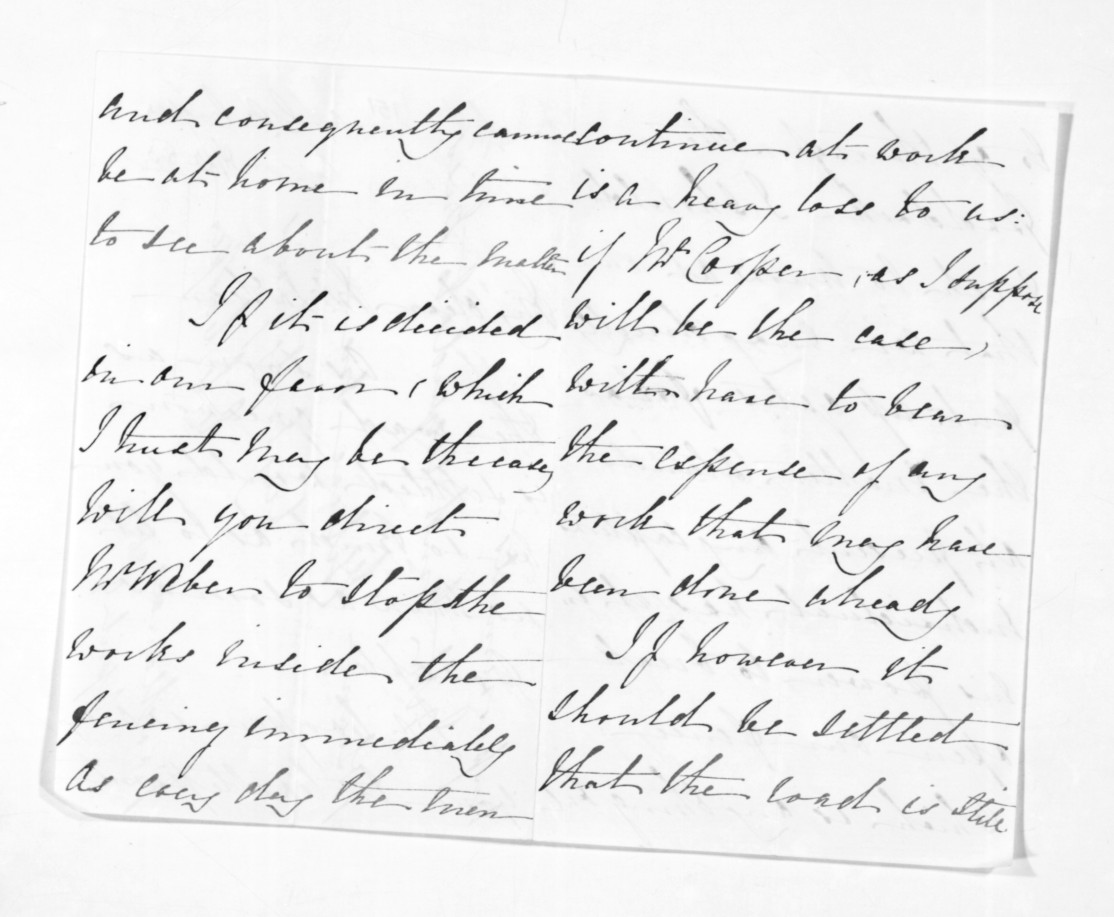 and consequently cannot
be at home in time
to see about the matter
If it is decided
in our favor, which
I trust may be the case,
will you direct
Mr Weber to stop the
works inside the
fencing immediately
as every day the men
continue at work
is a heavy loss to us:
if Mr Cooper, as I suppose
will be the case,
will have to bear
the expense of any
work that may have
been done already
If however it
should be settled
that the road is still